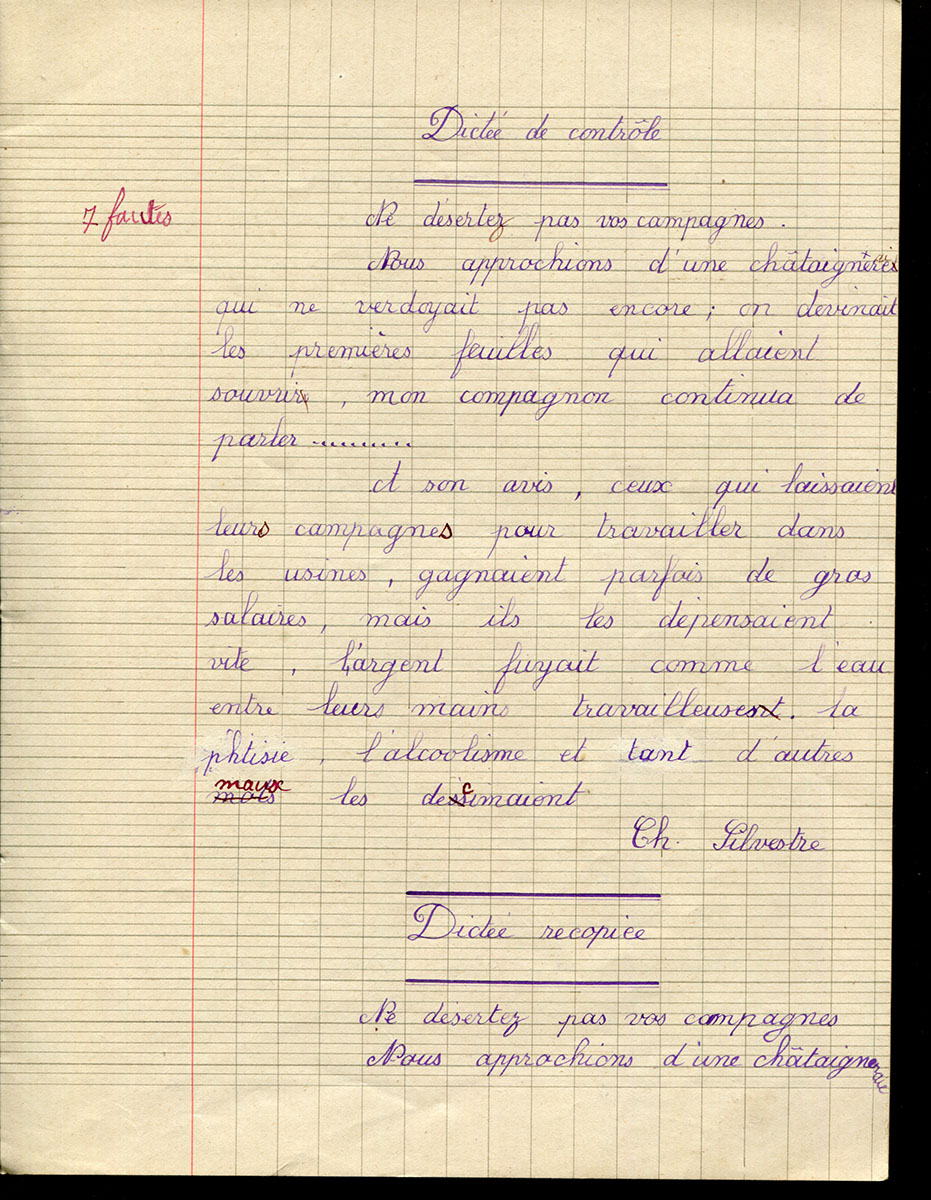 Dictée de contrôle
7 fautes
Ne désertez pas vos campagnes.
Nous approchions d'une châtaigneraie
qui ne verdoyait pas encore ; on devinait
les premières feuilles qui allaient
souvrir, mon compagnon continua de
parler ..........
A son avis, ceux qui laissaient
leurs campagnes pour travailler dans
les usines, gagnaient parfois de gros
salaires, mais ils les dépensaient
vite, l'argent fuyait comme l'eau
entre leurs mains travailleuses. la
phtisie, l'alcoolisme et tant d'autres
maux
mais les décimaient
Ch. Silvestre
Dictée recopiée
Ne désertez pas vos campagnes
Nous approchions d'une châtaigneraie